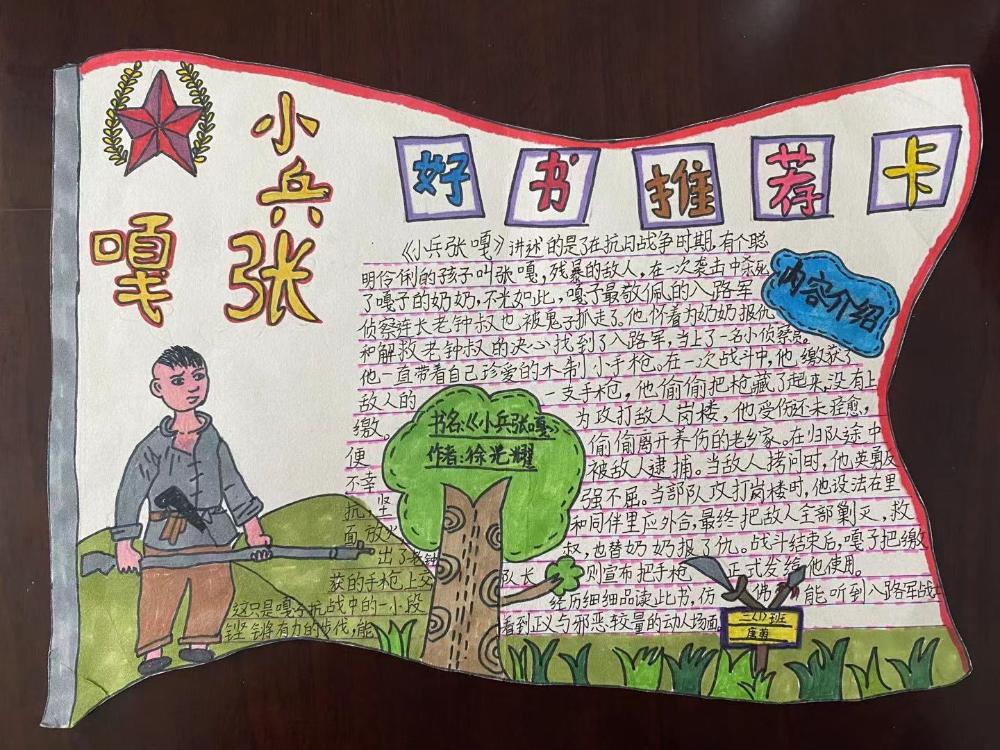 小兵张嘎
好书推荐卡
内容介绍
《小兵张嘎》讲述的是了在抗日战争时期,有个聪
明伶俐的孩子叫张嘎,残暴的敌人,在一次袭击中杀死
了嘎子的奶奶,不光如此,嘎子最敬佩的八路军
侦察连长老钟叔也被鬼子抓走了。他怀着为奶奶报仇
和解救老钟叔的决心找到了八路军,当上了一名小侦察员。
他一直带着自己珍爱的木制小手枪。在一次战斗中,他缴获了
敌人的一支手枪,他偷偷把枪藏了起来,没有上
缴。为攻打敌人岗楼,他受伤还未痊愈,
便偷偷离开养伤的老乡家。在归队途中
不幸被敌人逮捕。当敌人拷问时,他英勇
抗坚强不屈。当部队攻打岗楼时,他设法在里
面放火和同伴里应外合,最终把敌人全部剿灭,救
出了老钟叔,也替奶奶报了仇。战斗结束后,嘎子把缴
获的手枪上交队长则宣布把手枪正式发给他使用。
这只是嘎子抗战中的一小段经历细细品读此书,仿佛能听到八路军战
铿锵有力的步伐,能看到正义与邪恶较量的动人场面
书名:《小兵张嘎》
作者:徐光耀
三(1)班